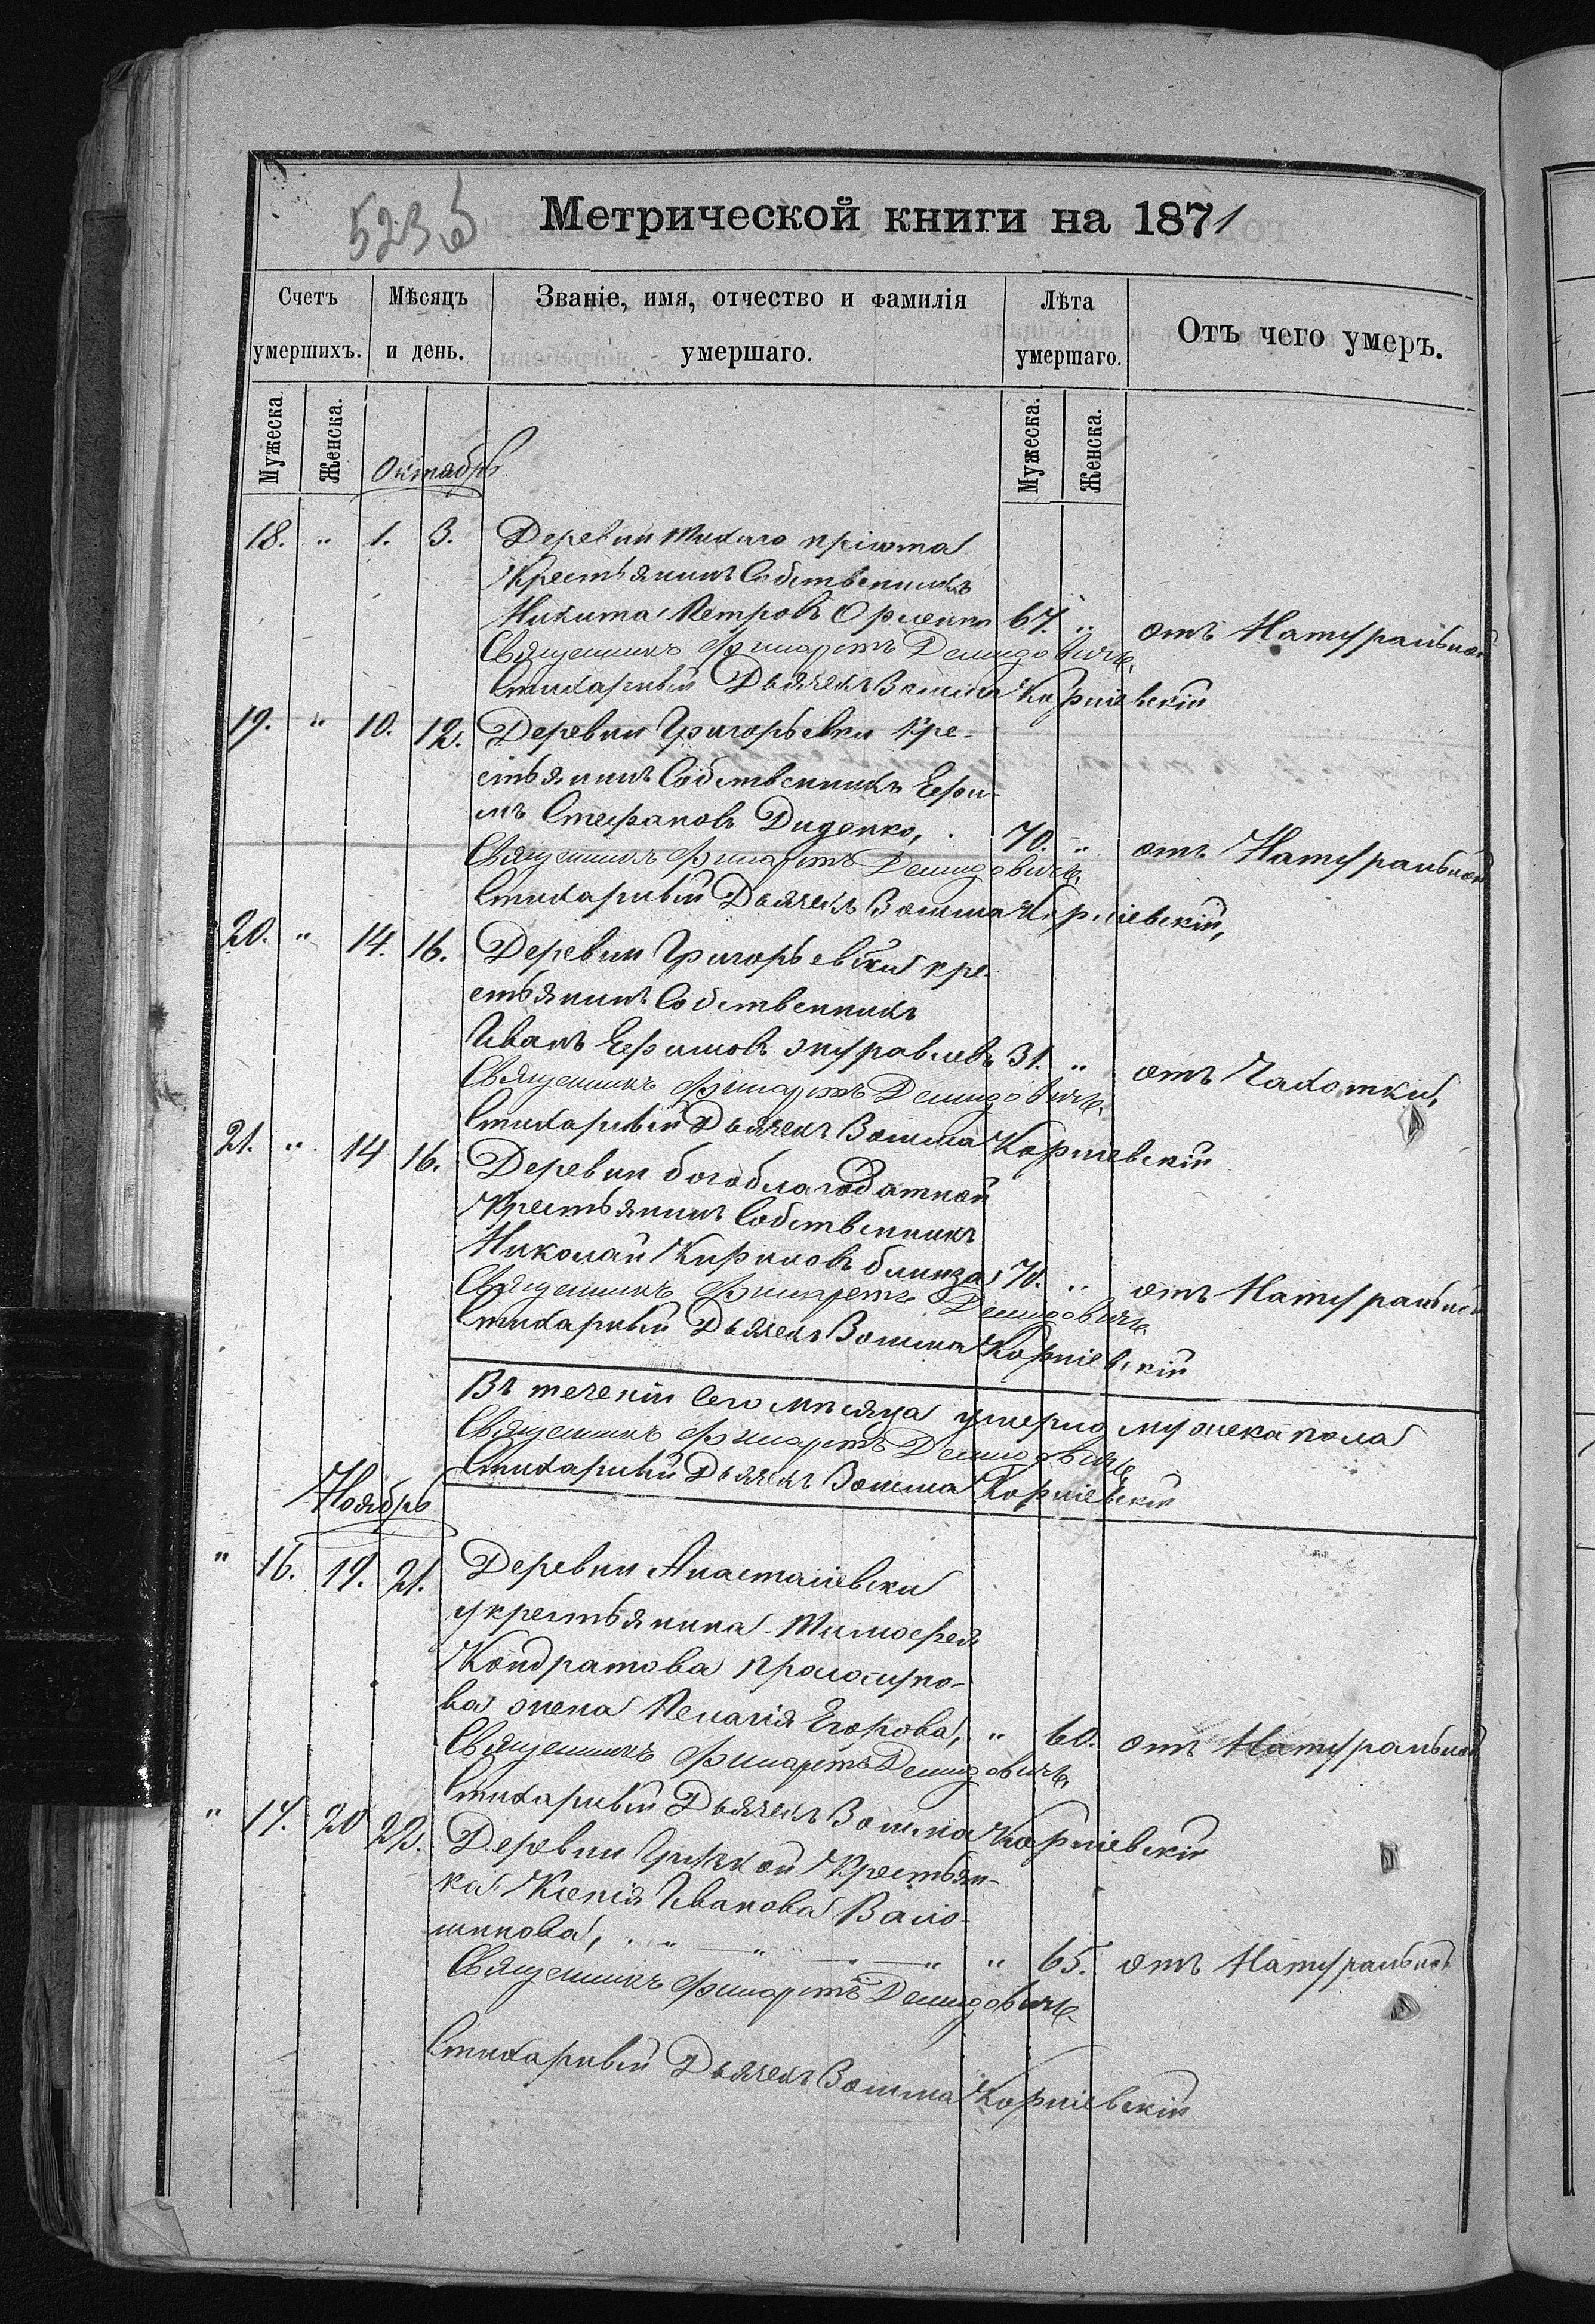 Метрической книги на 1871
523 об
Счетъ умершихъ.
Мѣсяцъ и день.
Званіе, имя, отчество и фамилія умершаго.
Лѣта умершаго.
Отъ чего умеръ.
Мужеска.
Женска.
Мужеска.
Женска.
Октябрь
18. " 1. 3. Деревни Тихаго пріюта
Крестьянинъ Собственникъ
Никита Петровъ Орленко 67. " отъ Натуральной
Священникъ Филаретъ Демидовичъ,
Стихарный Дьячекъ Корніевскій
19. " 10. 12. Деревни Григорьевки Кре-
стьянинъ Собственникъ Ефи-
мъ Стефановъ Диденко, 70. " отъ Натуральной
Священникъ Филаретъ Демидовичъ,
Стихарный Дьячекъ Корніевскій,
20. " 14. 16. Деревни Григорьевки кре-
стьянинъ Собственникъ
Иванъ Ефимовъ Журавлевъ 31. " отъ Чахотки,
Священникъ Филаретъ Демидовичъ,
Стихарный Дьячекъ Корніевскій
21. " 14 16. Деревни Богоблагодатной
Крестьянинъ Собственникъ
Николай Кириловъ 70. " отъ Натуральной
Священникъ Филаретъ Демидовичъ
Стихарный Дьячекъ Корніевскій
Въ теченіи сего мѣсяца умерло мужска пола
Священникъ Филаретъ Демидовичъ,
Стихарный Дьячекъ Корніевскій
Ноябрь
" 16. 19. 21. Деревни Анастасіевки
у крестьянина Тимофея
Кондратова
ва жена Пелагія Егорова, " 60. отъ Натуральной
Священникъ Филаретъ Демидовичъ,
Стихарный Дьячекъ Корніевскій
" 17. 20 22. Деревни Крестьян-
ка Ксенія Иванова Вало-
шинова, " 65. отъ Натуральной
Священникъ Филаретъ Демидовичъ
Стихарный Дьячекъ Корніевскій